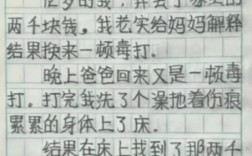 12岁的我,弄丢了
两千块钱,我老实给妈妈解释
结果换来一顿毒打。
晚上爸爸回来又是一顿毒
打。打完我洗了个澡拖着伤痕
累累的身体上了床。
结果在床上找到了那两千